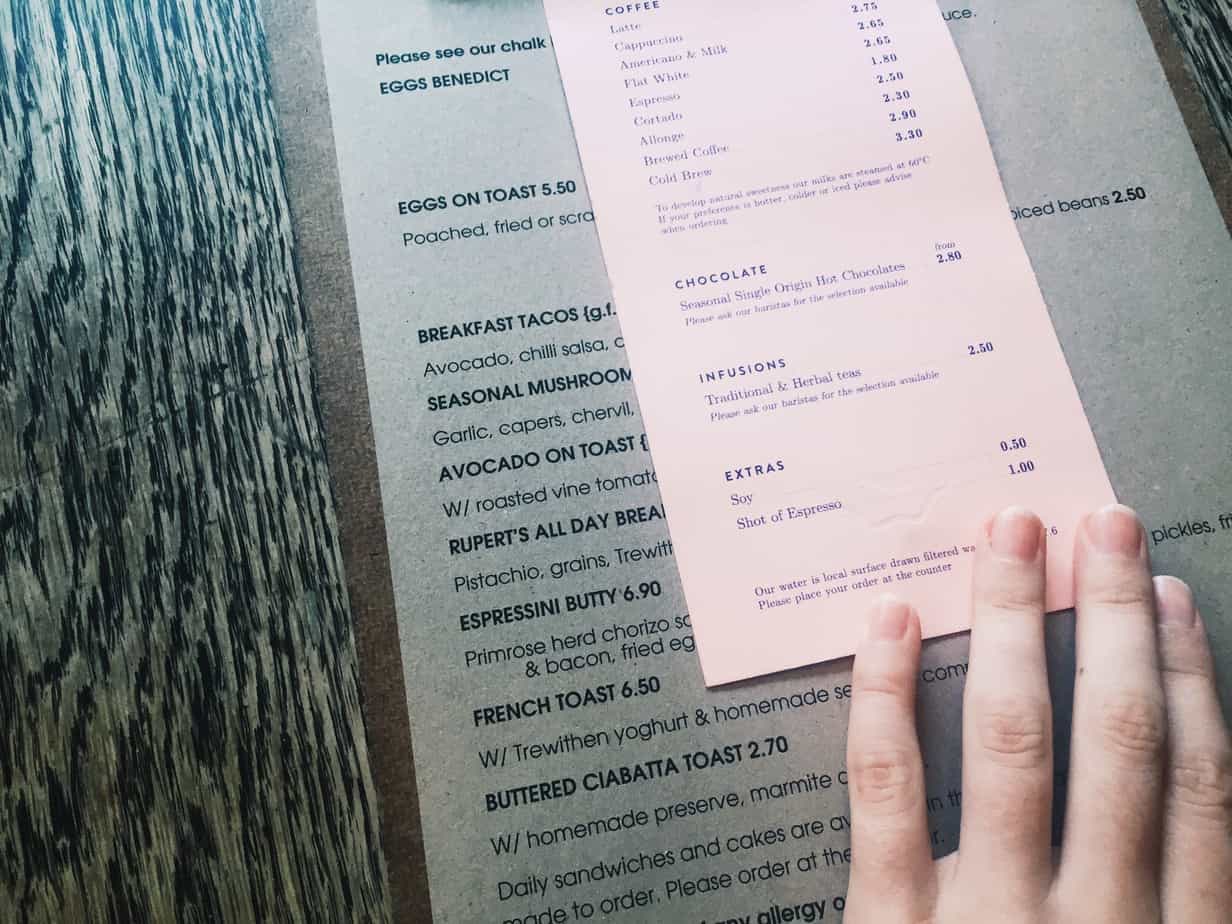 Please see our chalk
EGGS BENEDICT
EGGS ON TOAST 5.50
Poached, fried or scra
BREAKFAST TACOS {g.f.
Avocado, chilli salsa, c
SEASONAL MUSHROOM
Garlic, capers, chervil,
AVOCADO ON TOAST {
W/ roasted vine tomato
RUPERT'S ALL DAY BREA
Pistachio, grains, Trewith
ESPRESSINI BUTTY 6.90
Primrose herd chorizo sc
& bacon, fried eg
FRENCH TOAST 6.50
W/ Trewithen yoghurt & homemade se
BUTTERED CIABATTA TOAST 2.70
W/ homemade preserve, marmite
Daily sandwiches and cakes are av
made to order. Please order at the
any allergy o
COFFEE
Latte
Cappuccino 2.75
Americano & Milk 2.65
Flat White 2.65
Espresso 1.80
Cortado 2.50
Allonge 2.30
Brewed Coffee 2.90
Cold Brew 3.30
To develop natural sweetness our milks are steamed at 60°C
If your preference is hotter, colder or iced please advise
when ordering
CHOCOLATE
from
Seasonal Single Origin Hot Chocolates 2.80
Please ask our baristas for the selection available
INFUSIONS
Traditional & Herbal teas 2.50
Please ask our baristas for the selection available
EXTRAS
Soy 0.50
Shot of Espresso 1.00
Our water is local surface drawn filtered wa
Please place your order at the counter
uce.
piced beans 2.50
pickles, fri